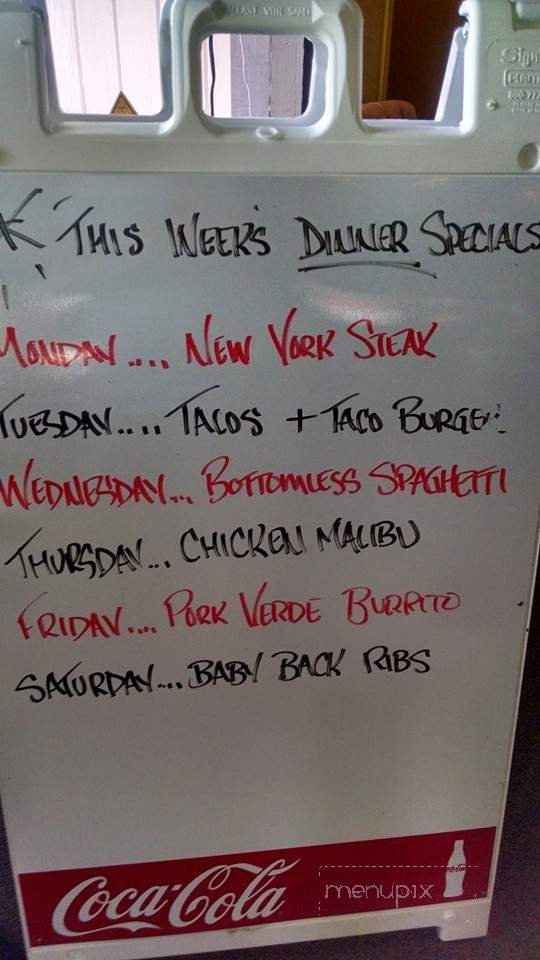 THIS WEEK'S DINNER SPECIALS
MONDAY.... NEW YORK STEAK
TUESDAY.... TACOS + TACO BURGER
WEDNESDAY... BOTTOMLESS SPAGHETTI
THURSDAY... CHICKEN MALIBU
FRIDAY.... PORK VERDE BURRITO
SATURDAY.... BABY BACK RIBS
Coca-Cola
menupix